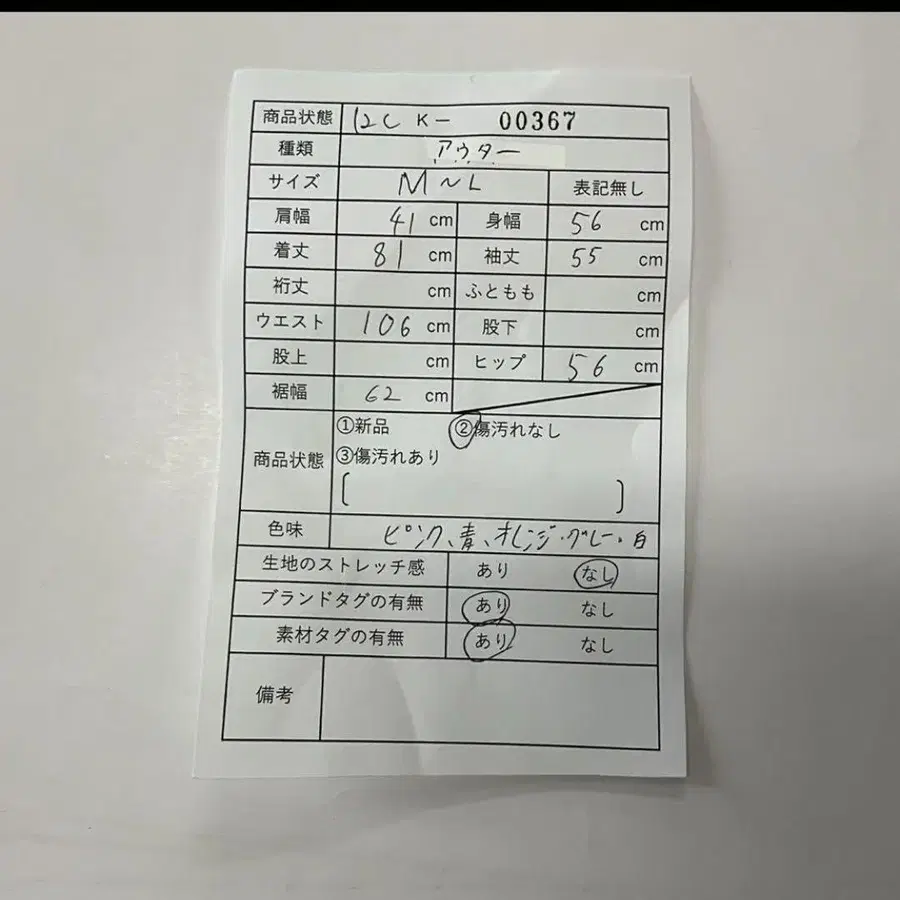 商品状態 12C K- 00367
種類 アウター
サイズ M～L 表記無し
肩幅 41 cm 身幅 56 cm
着丈 81 cm 袖丈 55 cm
裄丈 cm ふともも cm
ウエスト 106 cm 股下 cm
股上 cm ヒップ 56 cm
裾幅 62 cm
①新品 ②傷汚れなし
商品状態 ③傷汚れあり
[ ]
色味 ピンク、青、オレンジ・グレー・白
生地のストレッチ感 あり なし
ブランドタグの有無 あり なし
素材タグの有無 あり なし
備考